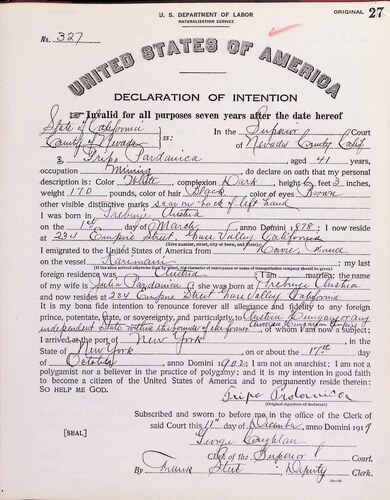 U. S. DEPARTMENT OF LABOR
NATURALIZATION SERVICE
ORIGINAL 27
No. 327
UNITED STATES OF AMERICA
DECLARATION OF INTENTION
Invalid for all purposes seven years after the date hereof
State of California
County of Nevada ss: In the Superior Court
of Nevada County Calif
I, Tripo Pardanica, aged 41 years,
occupation Mining, do declare on oath that my personal
description is: Color White, complexion Dark, height 6 feet 3 inches,
weight 170 pounds, color of hair Black, color of eyes Brown
other visible distinctive marks scar on back of left hand
I was born in Trebinje Austria
on the 1st day of March, anno Domini 1878; I now reside
at 234 Empire Street Grass Valley California
(Give number, street, city or town, and State.)
I emigrated to the United States of America from Havre, France
on the vessel; my last
(If the alien arrived otherwise than by vessel, the character of conveyance or name of transportation company should be given.)
foreign residence was Austria. I am married; the name
of my wife is Julia Pardanica; she was born at Trebinje Austria
and now resides at 234 Empire Street Grass Valley California
It is my bona fide intention to renounce forever all allegiance and fidelity to any foreign
prince, potentate, state, or sovereignty, and particularly to Austria Hungary or any
independent State within the bounds of the former Austrian Hungarian Empire, of whom I am now a subject;
I arrived at the port of New York, in the
State of New York, on or about the 17th day
of October, anno Domini 1902; I am not an anarchist; I am not a
polygamist nor a believer in the practice of polygamy; and it is my intention in good faith
to become a citizen of the United States of America and to permanently reside therein:
SO HELP ME GOD.
(Original signature of declarant.)
Subscribed and sworn to before me in the office of the Clerk of
said Court this 11th day of December, anno Domini 1919
[SEAL]
George Coughlan
Clerk of the Superior Court.
By, Deputy Clerk.